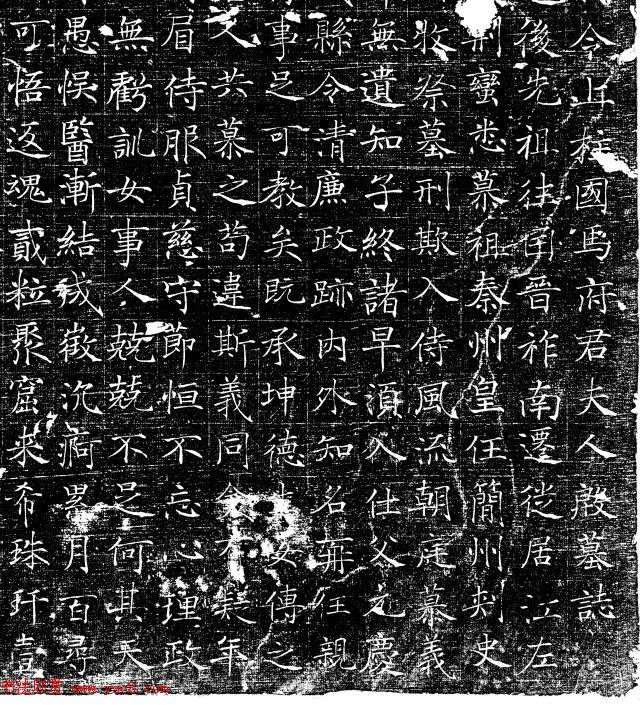 今上柱國馬府君夫人殷墓誌
後先祖往因晉祚南遷從居江左
荊蠻悉慕祖秦州皇任簡州刾史
牧祭墓刑欺入侍風流朝庭慕義
無遺知子終諸早湏入仕父元慶
縣令清廉政跡內外知名再任親
事足可教矣既承坤德女傳之
文共慕之苟違斯義同疑年
眉侍服貞慈守節恒不忘心理政
無虧訓女事人兢兢不足何其天
愚悞醫漸結成徵沉痾累月百尋
可悟返魂貳粒聚窟來希珠玕